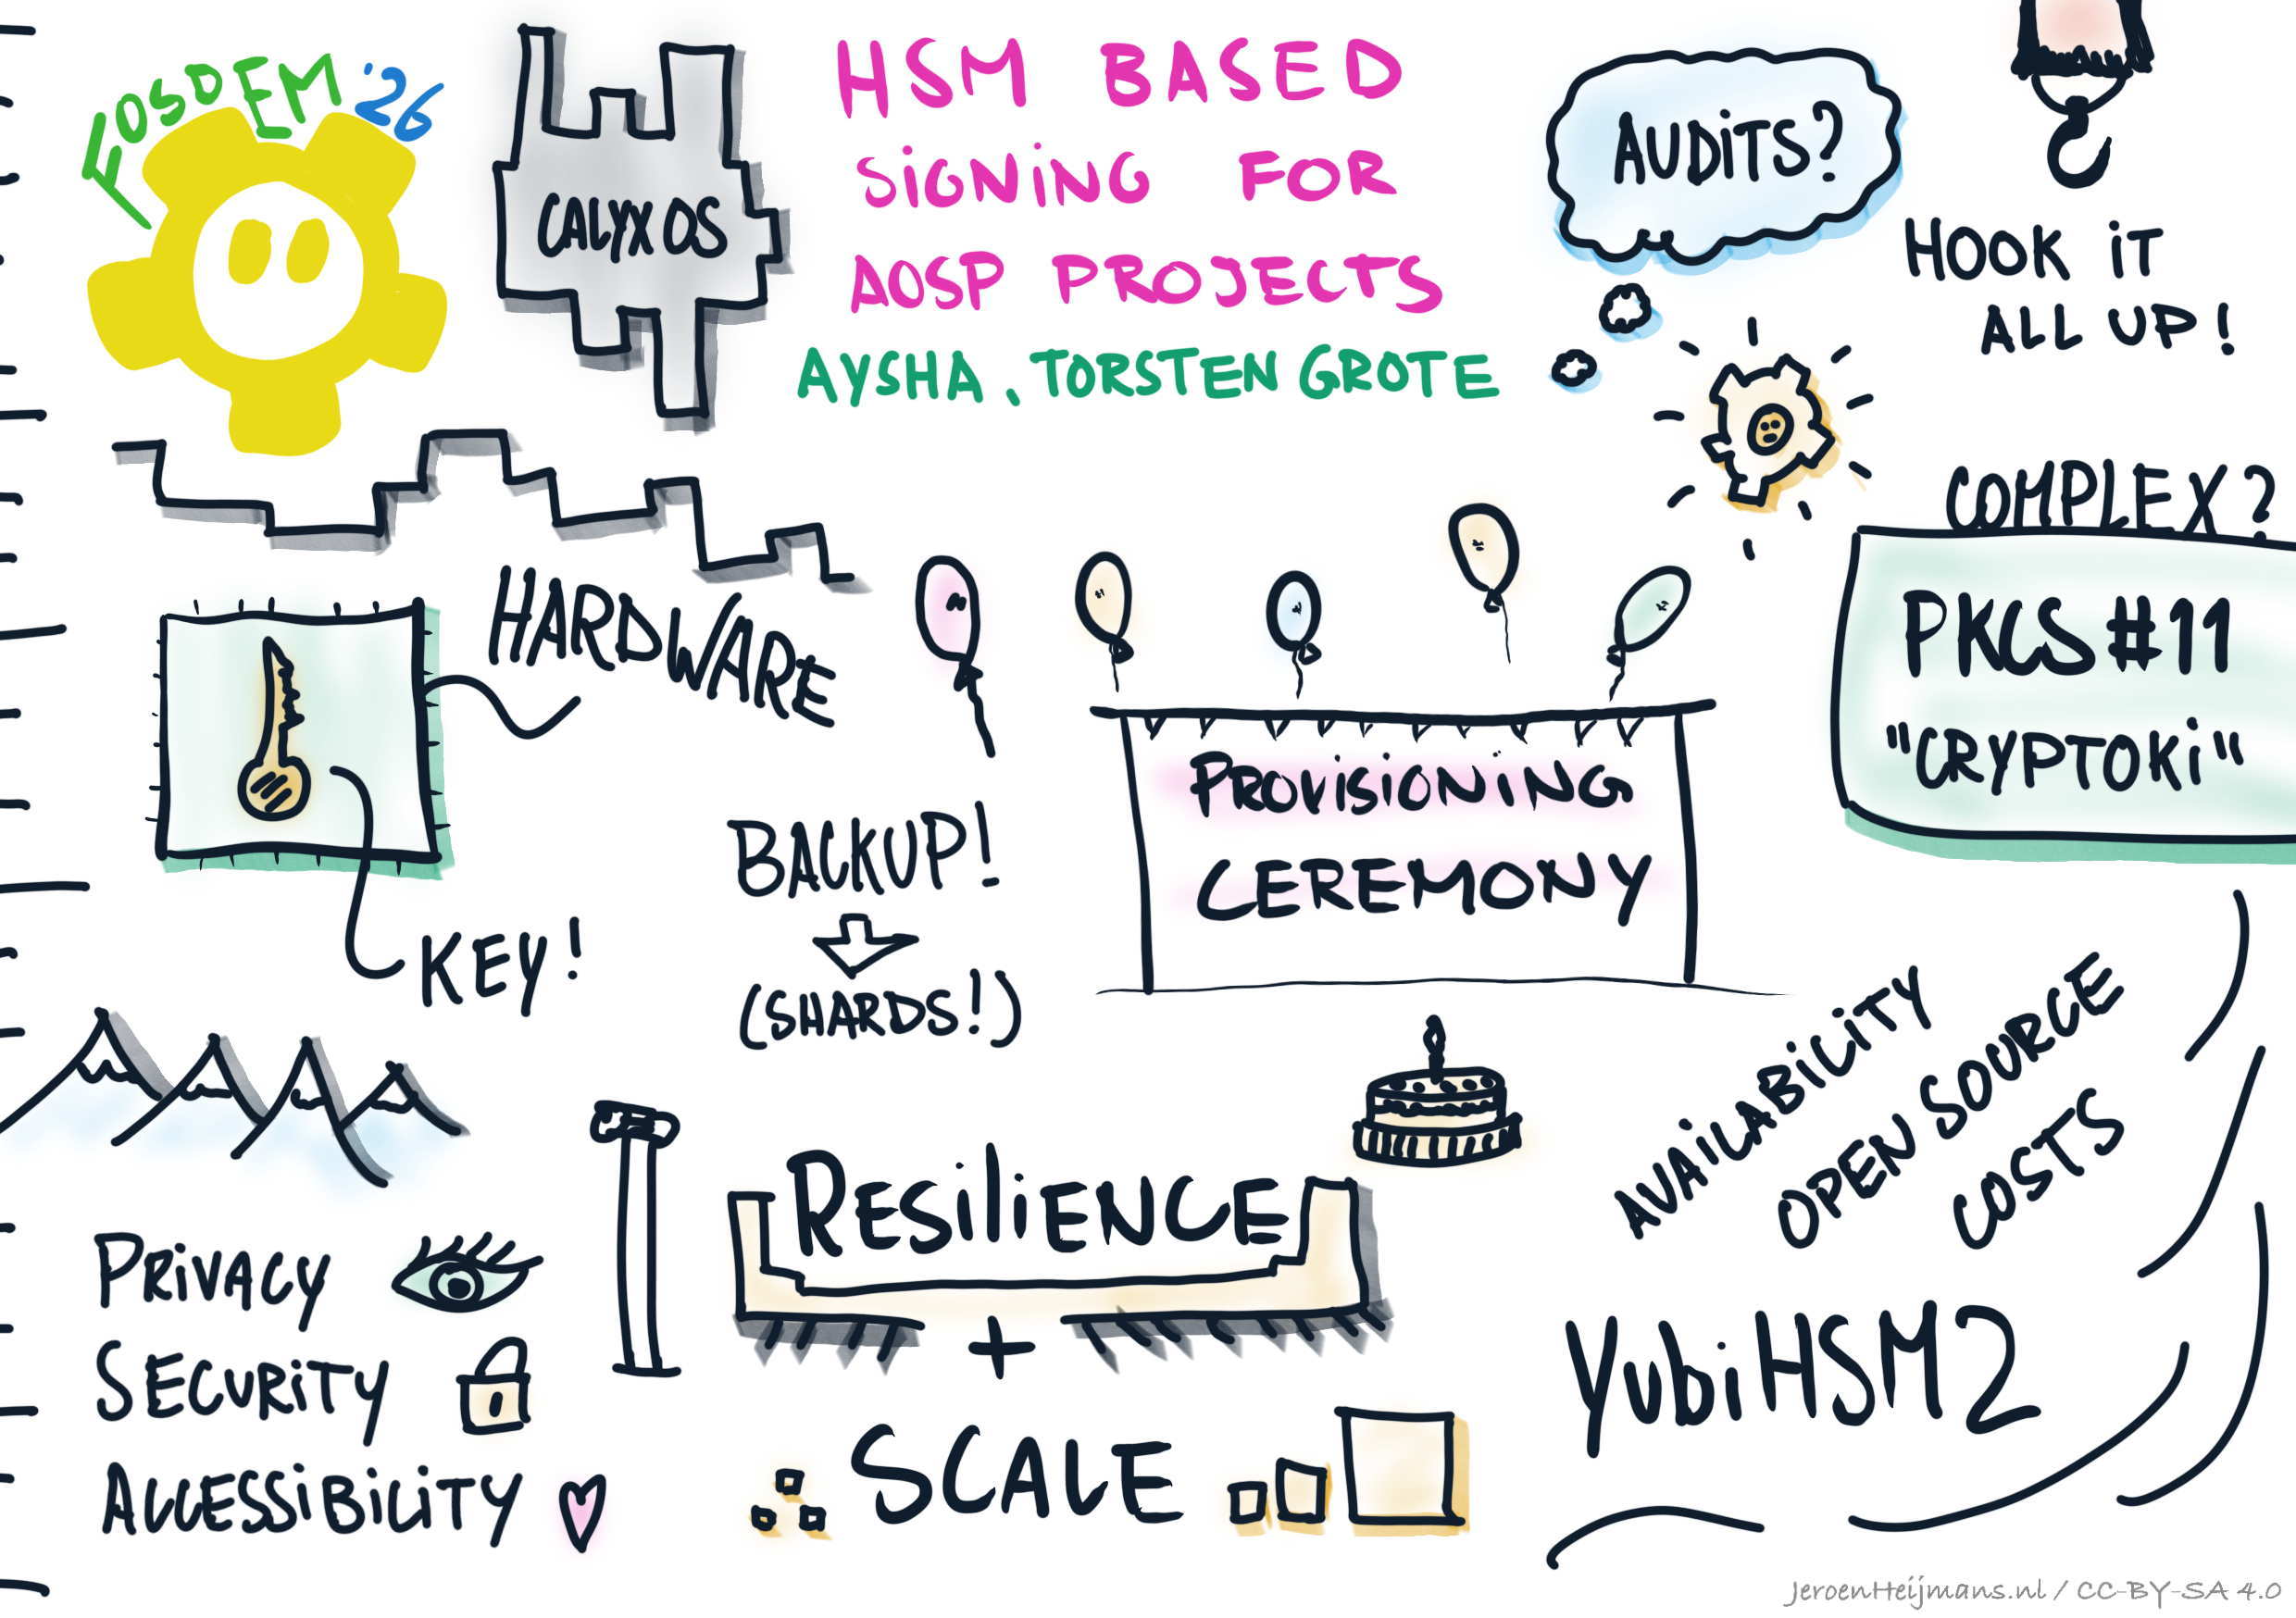 FOSDEM '26
CALYXOS
HSM BASED
SIGNING FOR
AOSP PROJECTS
AYSHA, TORSTEN GROTE
AUDITS?
HOOK IT
ALL UP!
COMPLEX?
PKCS #11
"CRYPTOKI"
HARDWARE
KEY!
BACKUP!
(SHARDS!)
PROVISIONING
CEREMONY
PRIVACY
SECURITY
ACCESSIBILITY
RESILIENCE
+
SCALE
AVAILABILITY
OPEN SOURCE
COSTS
YubiHSM2
JeroenHeijmans.nl / CC-BY-SA 4.0